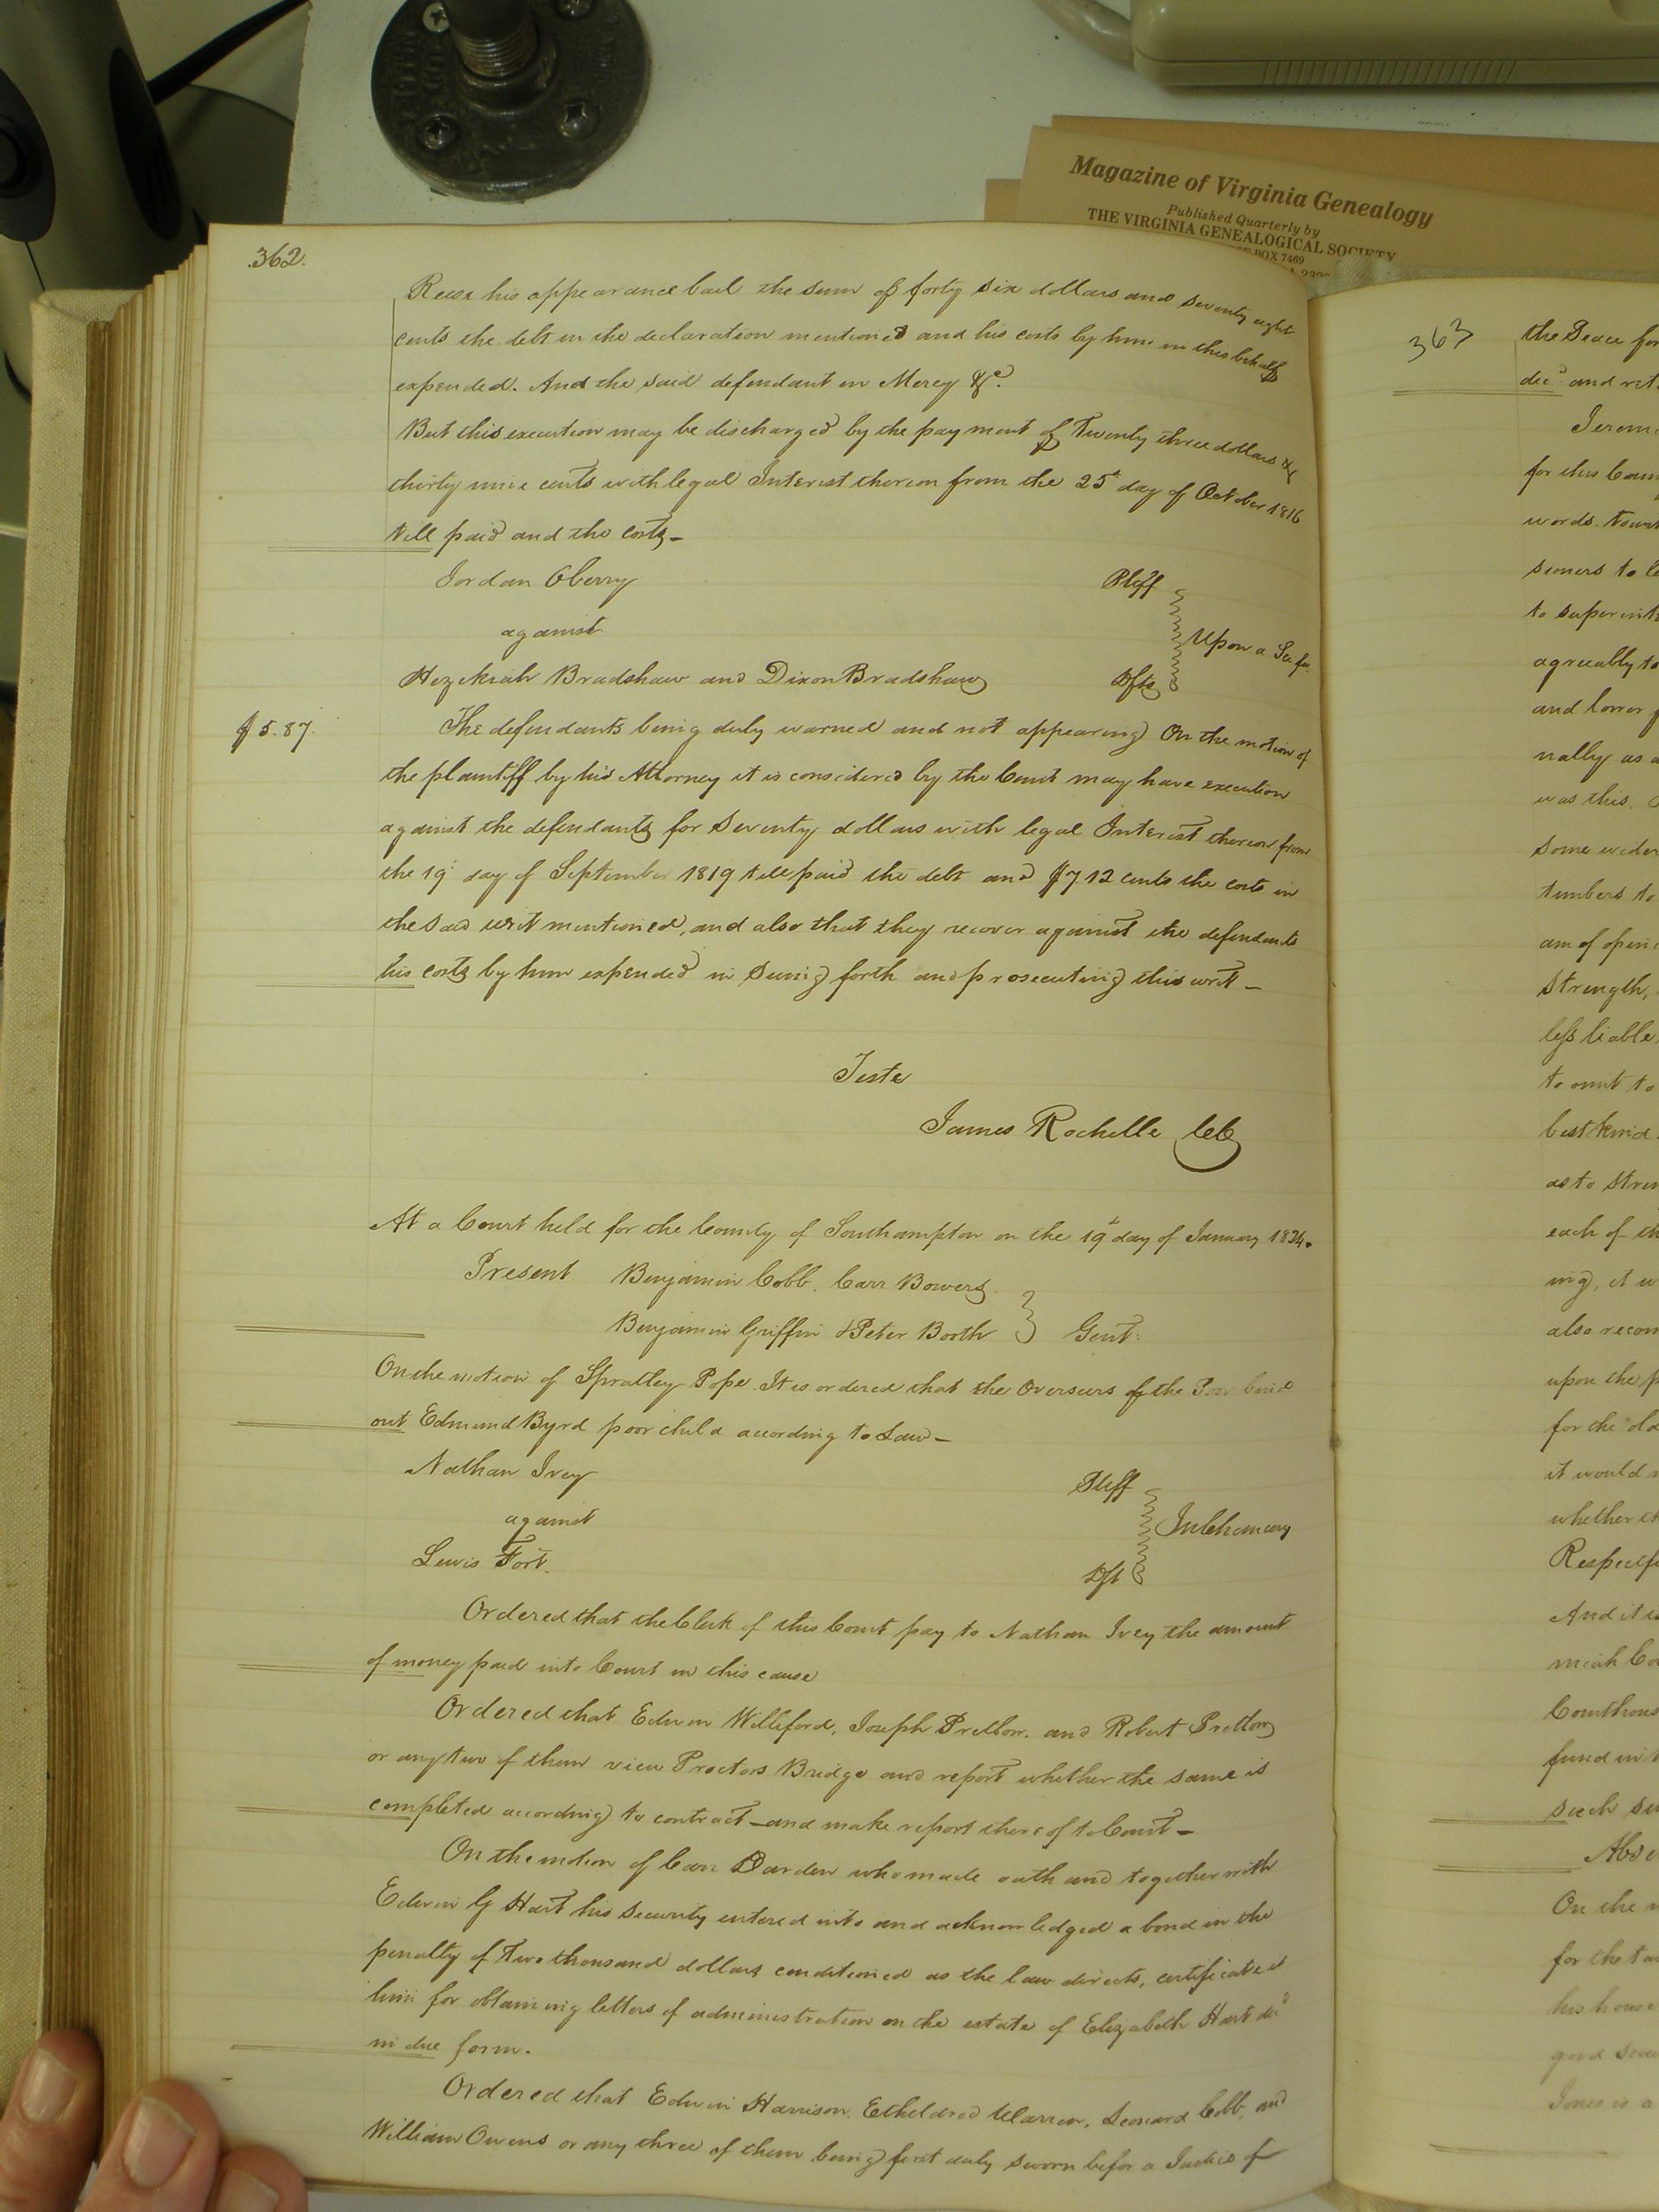 Magazine of Virginia Genealogy
Published Quarterly by
THE VIRGINIA GENEALOGICAL SOCIETY
BOX 7469
362.
Reese his appearance bail the sum of forty six dollars and seventy eight
cents the debt in the declaration mentioned and his costs by him in this behalf
expended. And the said defendant in Mercy &c.
But this execution may be discharged by the payment of Twenty three dollars &
thirty nine cents with legal Interest thereon from the 25t day of October 1816
till paid and the costs_
Jordan Oberry Pltff
against Upon a Sci fa.
Hezekiah Bradshaw and Dixon Bradshaw Dfts
$5.87.
The defendants being duly warned and not appearing On the motion of
the plaintiff by his Attorney it is considered by the Court may have execution
against the defendants for Seventy dollars with legal Interest thereon from
the 19 day of September 1819 till paid the debt and $7 12 cents the costs in
the said writ mentioned, and also that they recover against the defendants
his costs by him expended in Suing forth and prosecuting this writ_
Teste
James Rochelle
At a Court held for the County of Southampton on the 19t day of January 1824.
Present Benjamin Cobb, Carr Bowers
Benjamin Griffin & Peter Booth } Gent:
On the motion of Spratley Pope It is ordered that the Overseers of the Poor bind
out Edmund Byrd poor child according to Law_
Nathan Ivey Pltff
against In Chancery
Lewis Fort. Dft
Ordered that the Clerk of this Court pay to Nathan Ivey the amount
of money paid into Court in this cause
Ordered that Edwin Williford, Joseph Pretlow, and Robert Pretlow
or any two of them view Proctors Bridge and report whether the same is
completed according to contract_and make report thereof to Court_
On the motion of Carr Darden who made oath and together with
Edwin G Hart his security entered into and acknowledged a bond in the
penalty of Two thousand dollars conditioned as the law directs, certificate is
him for obtaining letters of administration on the estate of Elizabeth Hart decd
in due form.
Ordered that Edwin Harrison, Etheldred Warren, Leonard Cobb, and
William Owens or any three of them being first duly sworn before a Justice of
363
the Peace for
decd and ret
Jerem
for this Coun
words. town
sioners to
to superint
agreeably to
and lower
nally as
was this.
some wider
timbers to
am of opini
Strength,
less liable
to omit to
best kind
as to Stren
each of th
ing, it w
also recom
upon the p
for the old
it would
whether
Respectf
And it is
miah Co
Courthous
fund in
such su
Abs
On the
for the
his house
good Secu
Jones is a